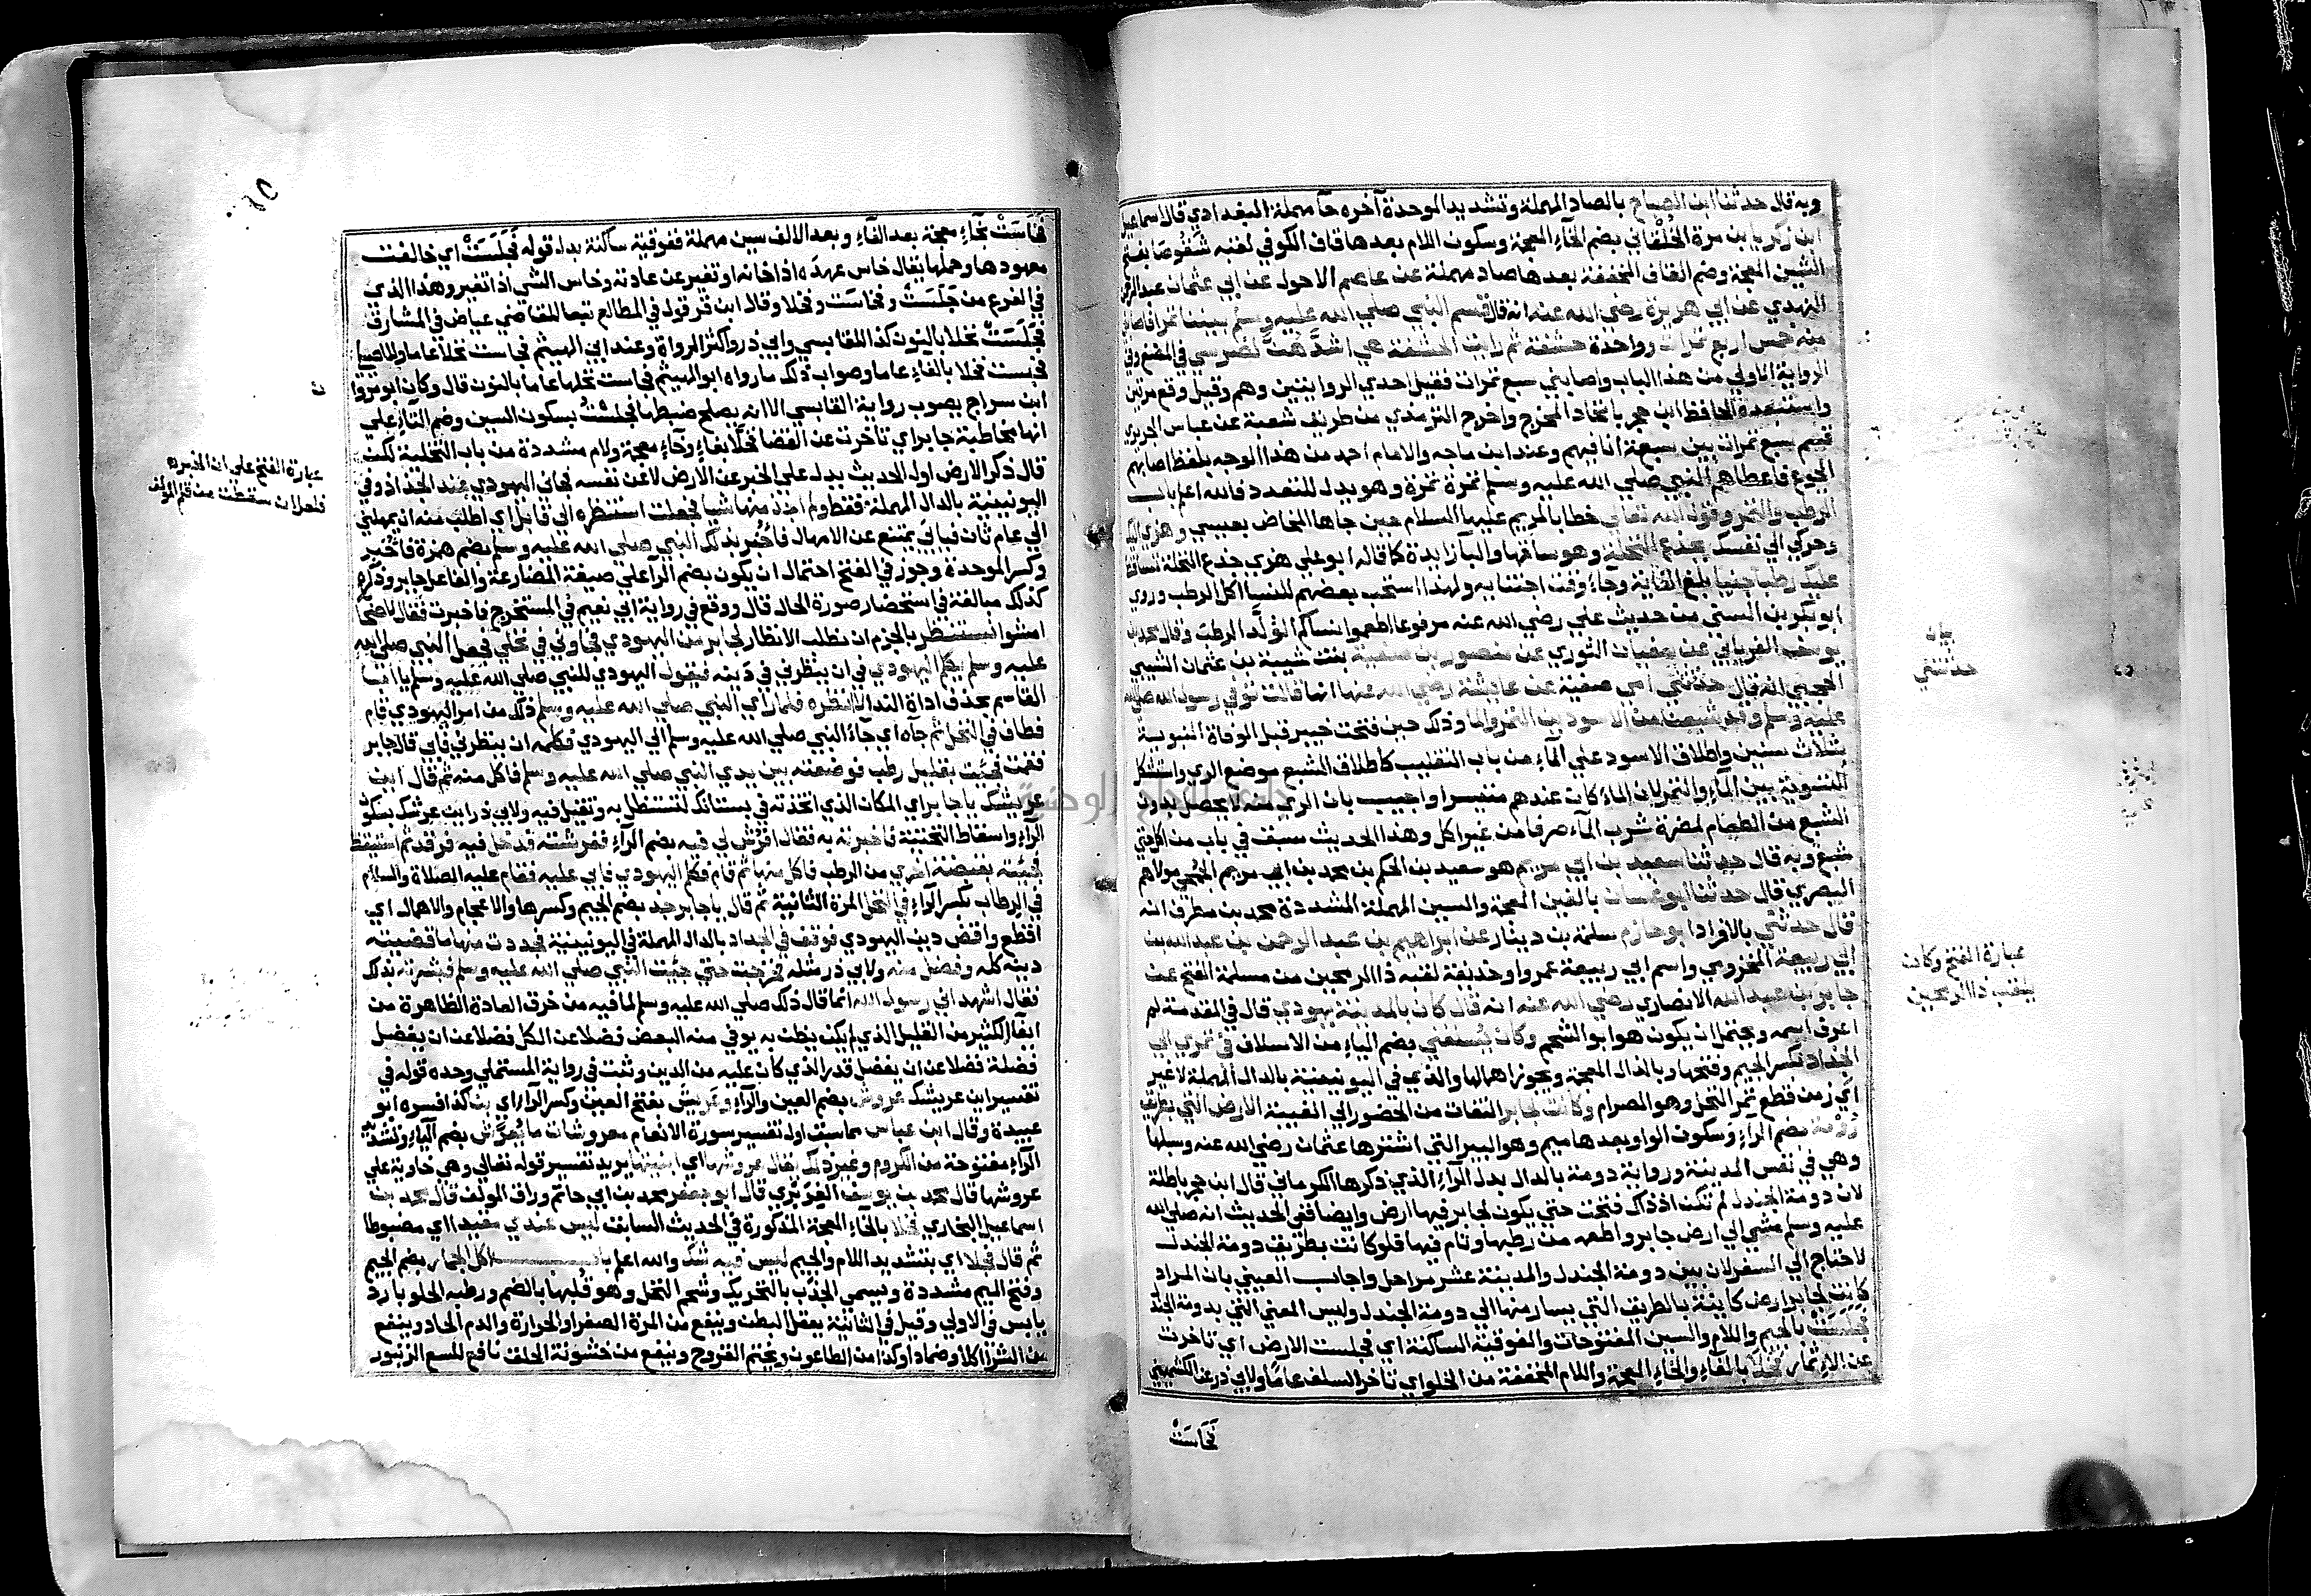 وبه قال حدثنا ابن الصباح بالصاد المهملة وتشديد الموحدة آخره حآ مهملة البغدادي قال اسماعيل
ابن زكريا بن مرة الخلقاني بضم الخآء المعجمة وسكون اللام بعدها قاف الكوفي لقبه شقوصا بفتح
الشين المعجمة وضم القاف المخففة بعدها صاد مهملة عن عاصم الاحول عن ابي عثمان عبد الرحمن
النهدي عن ابي هريرة رضي الله عنه انه قال قسم النبي صلي الله عليه وسلم بيننا تمرا فاصابني
منه خمس اربع تمرات وواحدة حشفة ثم رايت الحشفة هي اشدهن لضرسي في المضغ وفي
الرواية الاولي من هذا الباب واصابني سبع تمرات فقيل احدي الروايتين وهم وقيل وقع مرتين
واستبعده الحافظ ابن حجر باتحاد المخرج واخرج الترمذي من طريق شعبة عن عباس الجريري
قسم سبع تمرات بين سبعة انا فيهم وعند ابن ماجه والامام احمد من هذا الوجه بلفظ اصابهم
الجوع فاعطاهم النبي صلي الله عليه وسلم تمرة تمرة وهو يدل للتعدد فالله اعلم باب
الرطب والتمر وقول الله تعالي خطابا لمريم عليها السلام حين جاها المخاض بعيسي وهزي اليك
وحركي الي نفسك بجذع النخلة وهو ساقها والبآ زايدة كما قاله ابو علي هزي جذع النخلة تساقط
عليك رطبا جنيا بلغ الغاية وجآء وقت اجتنايه ولهذا استحب بعضهم للنفسا اكل الرطب وروي
ابو بكر بن السني من حديث علي رضي الله عنه مرفوعا اطعموا نساكم الولد الرطب وقال محمد بن
يوسف الفريابي عن سفيان الثوري عن منصور بن صفية بنت شيبة بن عثمان الشيبي
الحجبي انه قال حدثتني امي صفية عن عايشة رضي الله عنها انها قالت توفي رسول الله صلي الله
عليه وسلم وقد شبعنا من الاسودين التمر والما وذلك حين فتحت خيبر قبل الوفاة النبوية
بثلاث سنين واطلاق الاسود علي المآء من باب التغليب كاطلاق الشبع موضع الري واستشكل
التسوية بين المآء والتمر لان المآء كان عندهم متيسرا واجيب بان الري منه لا يحصل بدون
الشبع من الطعام لمضرة شرب المآء صرفا من غير اكل وهذا الحديث سبق في باب من اكل حتي
شبع وبه قال حدثنا سعيد بن ابي مريم هو سعيد بن الحكم بن محمد بن ابي مريم الجمحي مولاهم
البصري قال حدثنا ابو غسان بالغين المعجمة والسين المهملة المشددة محمد بن مطرف انه
قال حدثني بالافراد ابو حازم سلمة بن دينار عن ابراهيم بن عبد الرحمن بن عبد الله بن
ابي ربيعة المخزومي واسم ابي ربيعة عمرو او حذيفة لقبه ذا الرمحين من مسلمة الفتح عن
جابر بن عبد الله الانصاري رضي الله عنه انه قال كان بالمدينة يهودي قال في المقدمة لم
اعرف اسمه ويحتمل ان يكون هو ابو الشحم وكان يسلفني بضم اليآء من الاسلاف في تمري الي
الجذاذ بكسر الجيم وفتحها وبالذال المعجمة ويجوز اهمالها والذي في اليونينية بالدال المهملة لا غير
اي زمن قطع تمر النخل وهو الصرام وكانت لجابر التفات من الحضور الي الغيبة الارض التي بطريق
رومة بضم الرآء وسكون الواو وبعدها ميم وهو البير التي اشتراها عثمان رضي الله عنه وسبلها
وهي في نفس المدينة ورواية دومة بالدال بدل الرآء الذي ذكرها الكرماني قال ابن حجر باطلة
لان دومة الجندل لم تكن اذ ذاك فتحت حتي يكون لجابر فيها ارض وايضا ففي الحديث انه صلي الله
عليه وسلم مشي الي ارض جابر واطعمه من رطبها ونام فيها فلو كانت بطريق دومة الجندل
لاحتاج الي السفر لان بين دومة الجندل والمدينة عشر مراحل واجاب العيني بان المراد
كانت لجابر ارض كاينة بالطريق التي يسار منها الي دومة الجندل وليس المعني التي بدومة الجندل
فجلست بالجيم واللام والسين المفتوحات والفوقية الساكنة اي فجلست الارض اي تاخرت
عن الاثمار فخلا بالفآء والخآء المعجمة واللام المخففة من الخلو اي تاخر السلف عاما ولابي ذر عن الكشميهني
فخاست
باب
حدثتني
عبارة الفتح وكان
يلقب ذا الرمحين
فخاست بخآء معجمة بعد الفآء وبعد الالف سين مهملة ففوقية ساكنة بدل قوله فجلست اي خالفت
معهودها وحملها يقال خاس عهده اذا خانه او تغير عن عادته وخاس الشي اذا تغير وهذا الذي
في الفرع من جلست وفخاست ونخلا وقال ابن قرقول في المطالع تبعا للقاضي عياض في المشارق
فجلست نخلا بالنون كذا للقابسي وابي ذر واكثر الرواة وعند ابي الهيثم فخاست نخلا عاما وللاصيلي
فحبست فخلا بالفآء عاما وصواب ذلك ما رواه ابو الهيثم فخاست نخلها عاما بالنون قال وكان ابو مروان
ابن سراج يصوب رواية القابسي الا انه يصلح ضبطها فجلست بسكون السين وضم التآء علي
انها مخاطبة جابر اي تاخرت عن القضا فخلا بفاء وخآء معجمة ولام مشددة من باب التخلية لكن
قال ذكر الارض اول الحديث يدل علي الخبر عن الارض لا عن نفسه فجاني اليهودي عند الجذاذ وفي
اليونينية بالدال المهملة فقط ولم اجذ منها شيا فجعلت استنظره الي قابل اي اطلب منه ان يمهلني
الي عام ثان فيابي يمتنع عن الامهال فاخبر بذلك النبي صلي الله عليه وسلم بضم همزة فاخبر
وكسر الموحدة وجوز في الفتح احتمال ان يكون بضم الرآ علي صيغة المضارعة والفاعل جابر وذكره
كذلك مبالغة في استحضار صورة الحال قال ووقع في رواية ابي نعيم في المستخرج فاخبرت فقال لاصحابه
امشوا نستنظر بالجزم اي نطلب الانظار لجابر من اليهودي فجاوني في نخلي فجعل النبي صلي الله
عليه وسلم يكلم اليهودي في ان ينظرني في دينه فيقول اليهودي للنبي صلي الله عليه وسلم يا ابا
القاسم بحذف اداة الندا لا انظره فلما راي النبي صلي الله عليه وسلم ذلك من امر اليهودي قام
فطاف في النخل ثم جآه اي جآء النبي صلي الله عليه وسلم الي اليهودي فكلمه ان ينظرني فابي قال جابر
فقمت فجيت بقليل رطب فوضعته بين يدي النبي صلي الله عليه وسلم فاكل منه ثم قال اين
عريشك يا جابر اي المكان الذي اتخذته في بستانك لتستظل به وتقيل فيه ولابي ذر اين عرشك بسكون
الرآء واسقاط التحتية فاخبرته به فقال افرش لي فيه بضم الرآء ففرشته فدخل فيه فرقد ثم استيقظ
فجيته بقبضة اخري من الرطب فاكل منها ثم قام فكلم اليهودي فابي عليه فقام عليه الصلاة والسلام
في الرطاب بكسر الرآء في النخل المرة الثانية ثم قال يا جابر جد بضم الجيم وكسرها والاعجام والاهمال اي
اقطع واقض دين اليهودي فوقف في الجداد بالدال المهملة في اليونينية فجددت منها ما قضيته
دينه كله وفضل منه ولابي ذر مثله فخرجت حتي جيت النبي صلي الله عليه وسلم فبشرته بذلك
فقال اشهد اني رسول الله انما قال ذلك صلي الله عليه وسلم لما فيه من خرق العادة الظاهرة من
ايفآء الكثير من القليل الذي لم يكن يظن به يوفي منه البعض فضلا عن الكل فضلا عن ان يفضل
فضلة فضلا عن ان يفضل قدر الذي كان عليه من الدين وثبت في رواية المستملي وحده قوله في
تفسير اين عريشك عروش بضم العين والرآء وعريش بفتح العين وكسر الرآء اي بنا كذا فسره ابو
عبيدة وقال ابن عباس مما سبق اول تفسير سورة الانعام معروشات ما يعرش بضم اليآء وتشديد
الرآء مفتوحة من الكروم وغير ذلك يقال عروشها اي ابنيتها يريد تفسير قوله تعالي وهي خاوية علي
عروشها قال محمد بن يوسف الفربري قال ابو جعفر محمد بن ابي حاتم وراق المولف قال محمد بن
اسماعيل البخاري فخلا بالخآء المعجمة المذكورة في الحديث السابق ليس عندي مقيدا اي مضبوطا
ثم قال فجلا اي بتشديد اللام والجيم ليس فيه شك والله اعلم باب اكل الجمار بضم الجيم
وفتح الميم مشددة ويسمي الجذب بالتحريك وشحم النخل وهو قلبها بالضم ورطبه الحلو بارد
يابس في الاولي وقيل في الثانية يعقل البطن وينفع من المرة الصفرا والحرارة والدم الحاد وينفع
من الشرا اكلا وضمادا وكذا من الطاعون ويختم القروح وينفع من خشونة الحلق نافع للسع الزنبور
ن
عبارة الفتح علي ان
فلعل ان سقطت من قلم المولف